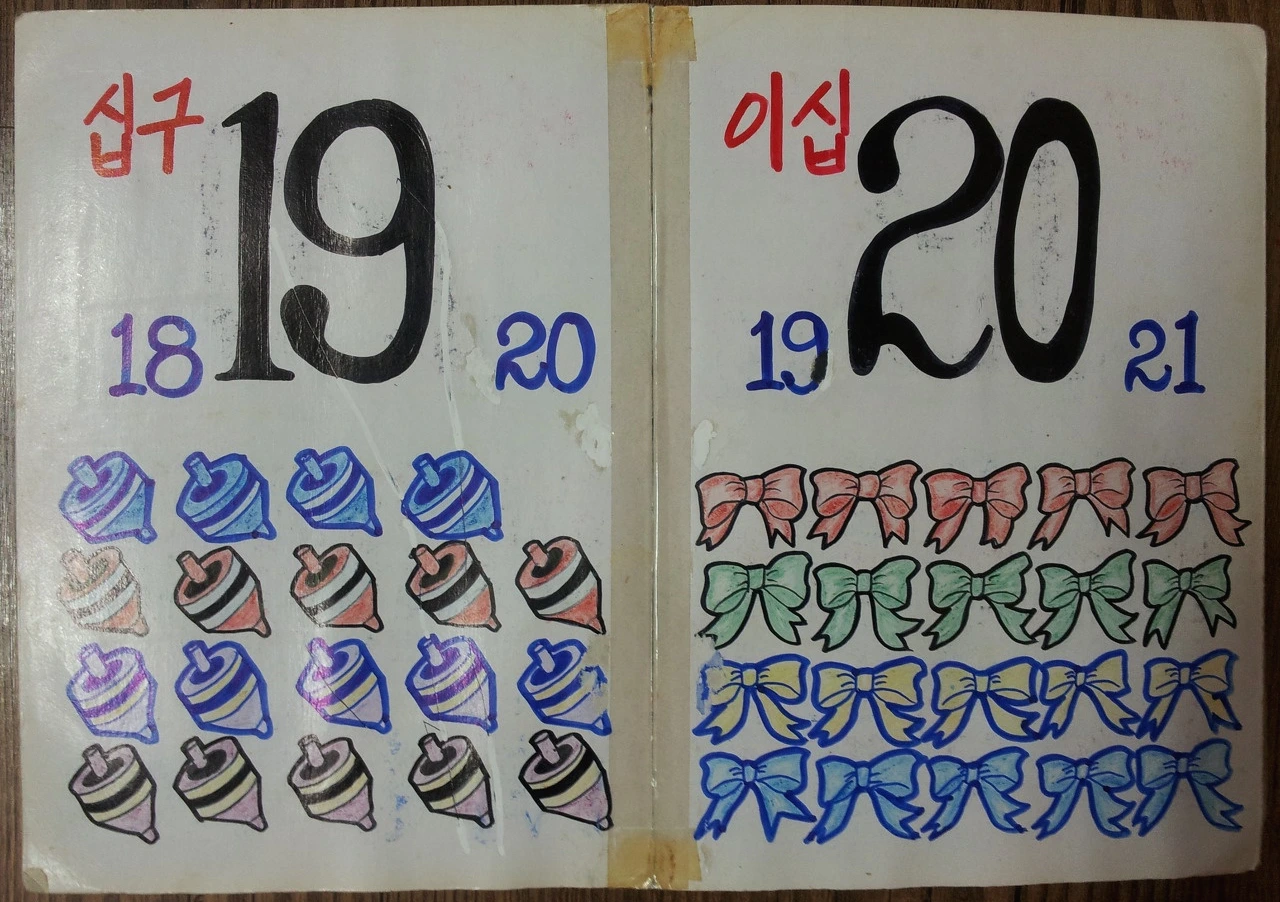 십구 19
18 20
이십 20
19 21